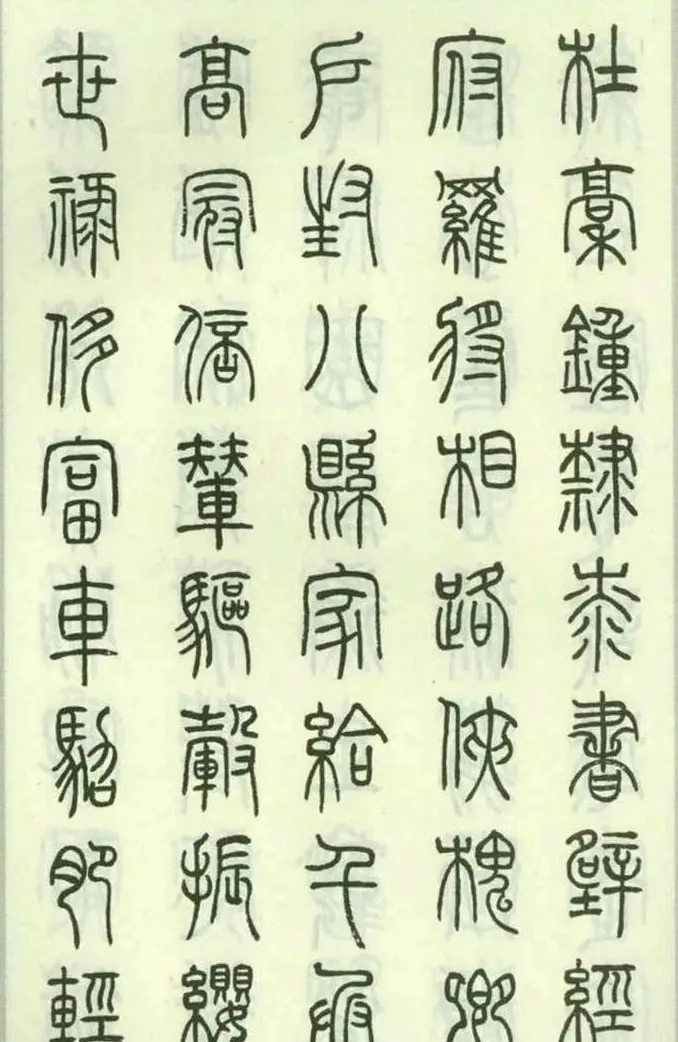 杜稾鍾隸桼書壁經
府羅將相路俠槐卿
戶封八縣家給千兵
高冠陪輦驅轂振纓
世祿侈富車駕肥輕